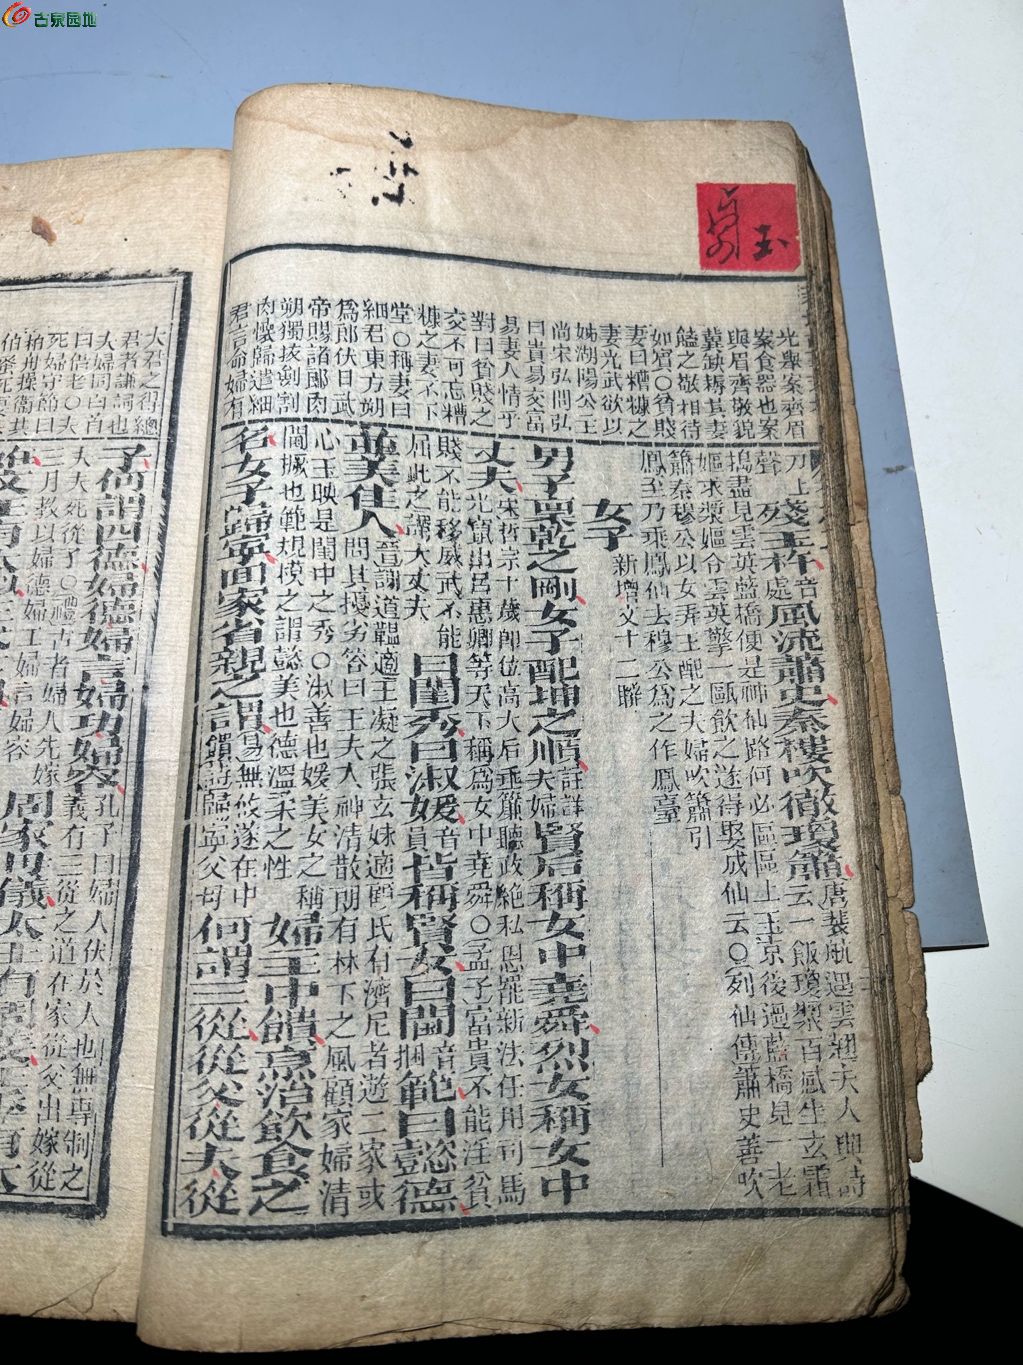 光舉案齊眉
案食器也案
與眉齊敬貌
冀缺耨其妻
饁之敬相待
如賓〇貧賤
妻曰糟糠之
妻光武欲以
姊湖陽公主
尚宋弘問弘
曰貴易交富
易妻人情乎
對曰貧賤之
交不可忘糟
糠之妻不下
堂〇稱妻曰
細君東方朔
為郎伏日武
帝賜諸郎肉
朔獨拔劍割
肉懷歸遺細
君言命婦有
聲殘玉杵音處風流蕭史秦樓吹徹瓊簫唐裴航遇雲翹夫人與詩云一飲瓊漿百感生玄霜
搗盡見雲英藍橋便是神仙路何必區區上玉京後過藍橋見一老
嫗求漿嫗令雲英擎一甌飲之遂得娶成仙云〇列仙傳蕭史善吹
簫秦穆公以女弄玉配之夫婦吹簫引
鳳至乃乘鳳仙去穆公為之作鳳臺
女子新增文十二聯
男子稟乾之剛女子配坤之順註詳夫婦賢后稱女中堯舜烈女稱女中
丈夫宋哲宗十歲即位高太后垂簾聽政絕私恩罷新法任用司馬
光竄出呂惠卿等天下稱為女中堯舜〇孟子富貴不能淫貧
賤不能移威武不能屈此之謂大丈夫曰閨秀曰淑媛音員皆稱賢女曰閫音捆範曰懿德
並美佳人晉謝道韞適王凝之張玄妹適顧氏有濟尼者遊二家或
問其優劣答曰王夫人神清散朗有林下之風顧家婦清
心玉映是閨中之秀〇淑善也媛美女之稱
閫捆也範規模之謂懿美也德溫柔之性婦主中饋烹治飲食之
名女子歸寧回家省親之謂易無攸遂在中饋詩歸寧父母何謂三從從父從夫從
大君之得總
君者謙詞也
夫婦同白首
曰偕老〇夫
死婦守節曰
柏舟操衛共
伯蚤死妻共
子何謂四德婦德婦言婦功婦容孔子曰婦人伏於人也無專制之
義有三從之道在家從父出嫁從
夫夫死從子〇禮古者婦人先嫁
三月教以婦德婦工婦言婦容周家母儀太王有周姜
古泉园地